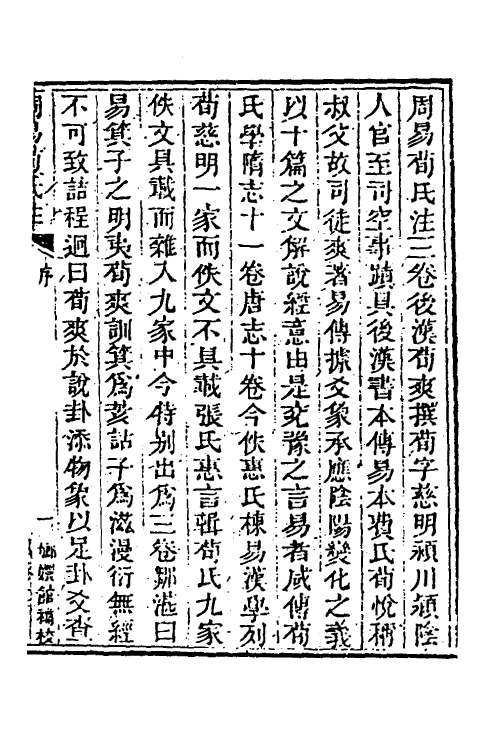 周易荀氏注三卷後漢荀爽撰荀字慈明潁川潁陰
人官至司空事蹟具後漢書本傳易本費氏荀悅稱
叔父故司徒爽著易傳據爻象承應陰陽變化之義
以十篇之文解說經意由是兖豫之言易者咸傳荀
氏學隋志十一卷唐志十卷今佚惠氏棟易漢學列
荀慈明一家而佚文不具載張氏惠言輯荀氏九家
佚文具載而雜入九家中今特別出為三卷鄒湛曰
易箕子之明夷荀爽訓箕為荄詁子為滋漫衍無經
不可致詰程迥曰荀爽於說卦添物象以足卦爻查
周易荀氏注 序 一 嫏嬛館補校